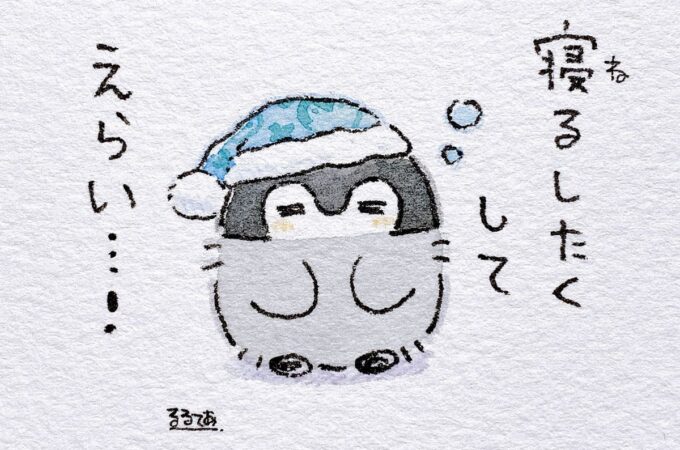 寝るしたく
ね
して
えらい……
るるてあ